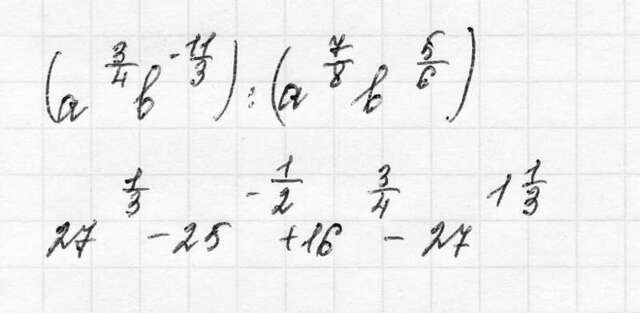 (a^{\frac{3}{4}} b^{-\frac{11}{3}}) : (a^{\frac{7}{8}} b^{\frac{5}{6}})
27^{\frac{1}{3}} - 25^{-\frac{1}{2}} + 16^{\frac{3}{4}} - 27^{1\frac{1}{3}}